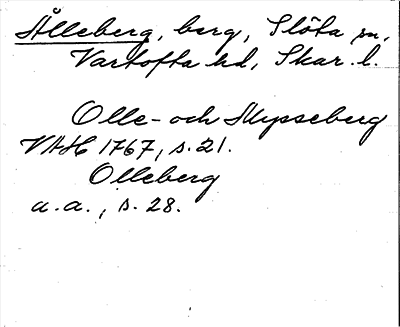 Ålleberg, berg, Slöta sn,
Vartofta hd, Skar. l.
Olle- och Mysseberg
VAH 1767, s. 21.
Olleberg
a. a., s. 28.